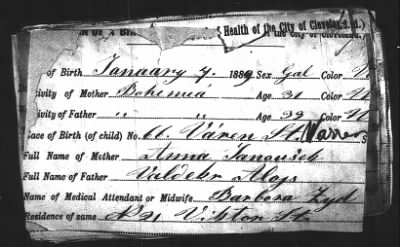 Health of the City of Cleveland.)
of Birth January 7. 1889 Sex Gal Color
tivity of Mother Bohemiá Age 31 Color
tivity of Father " " Age 39 Color
lace of Birth (of child) No. 66. Váren St. Warren
Full Name of Mother Anna Janousek
Full Name of Father Alojs
Name of Medical Attendant or Midwife Barbora Zyd
Residence of same No 21 Viktor St